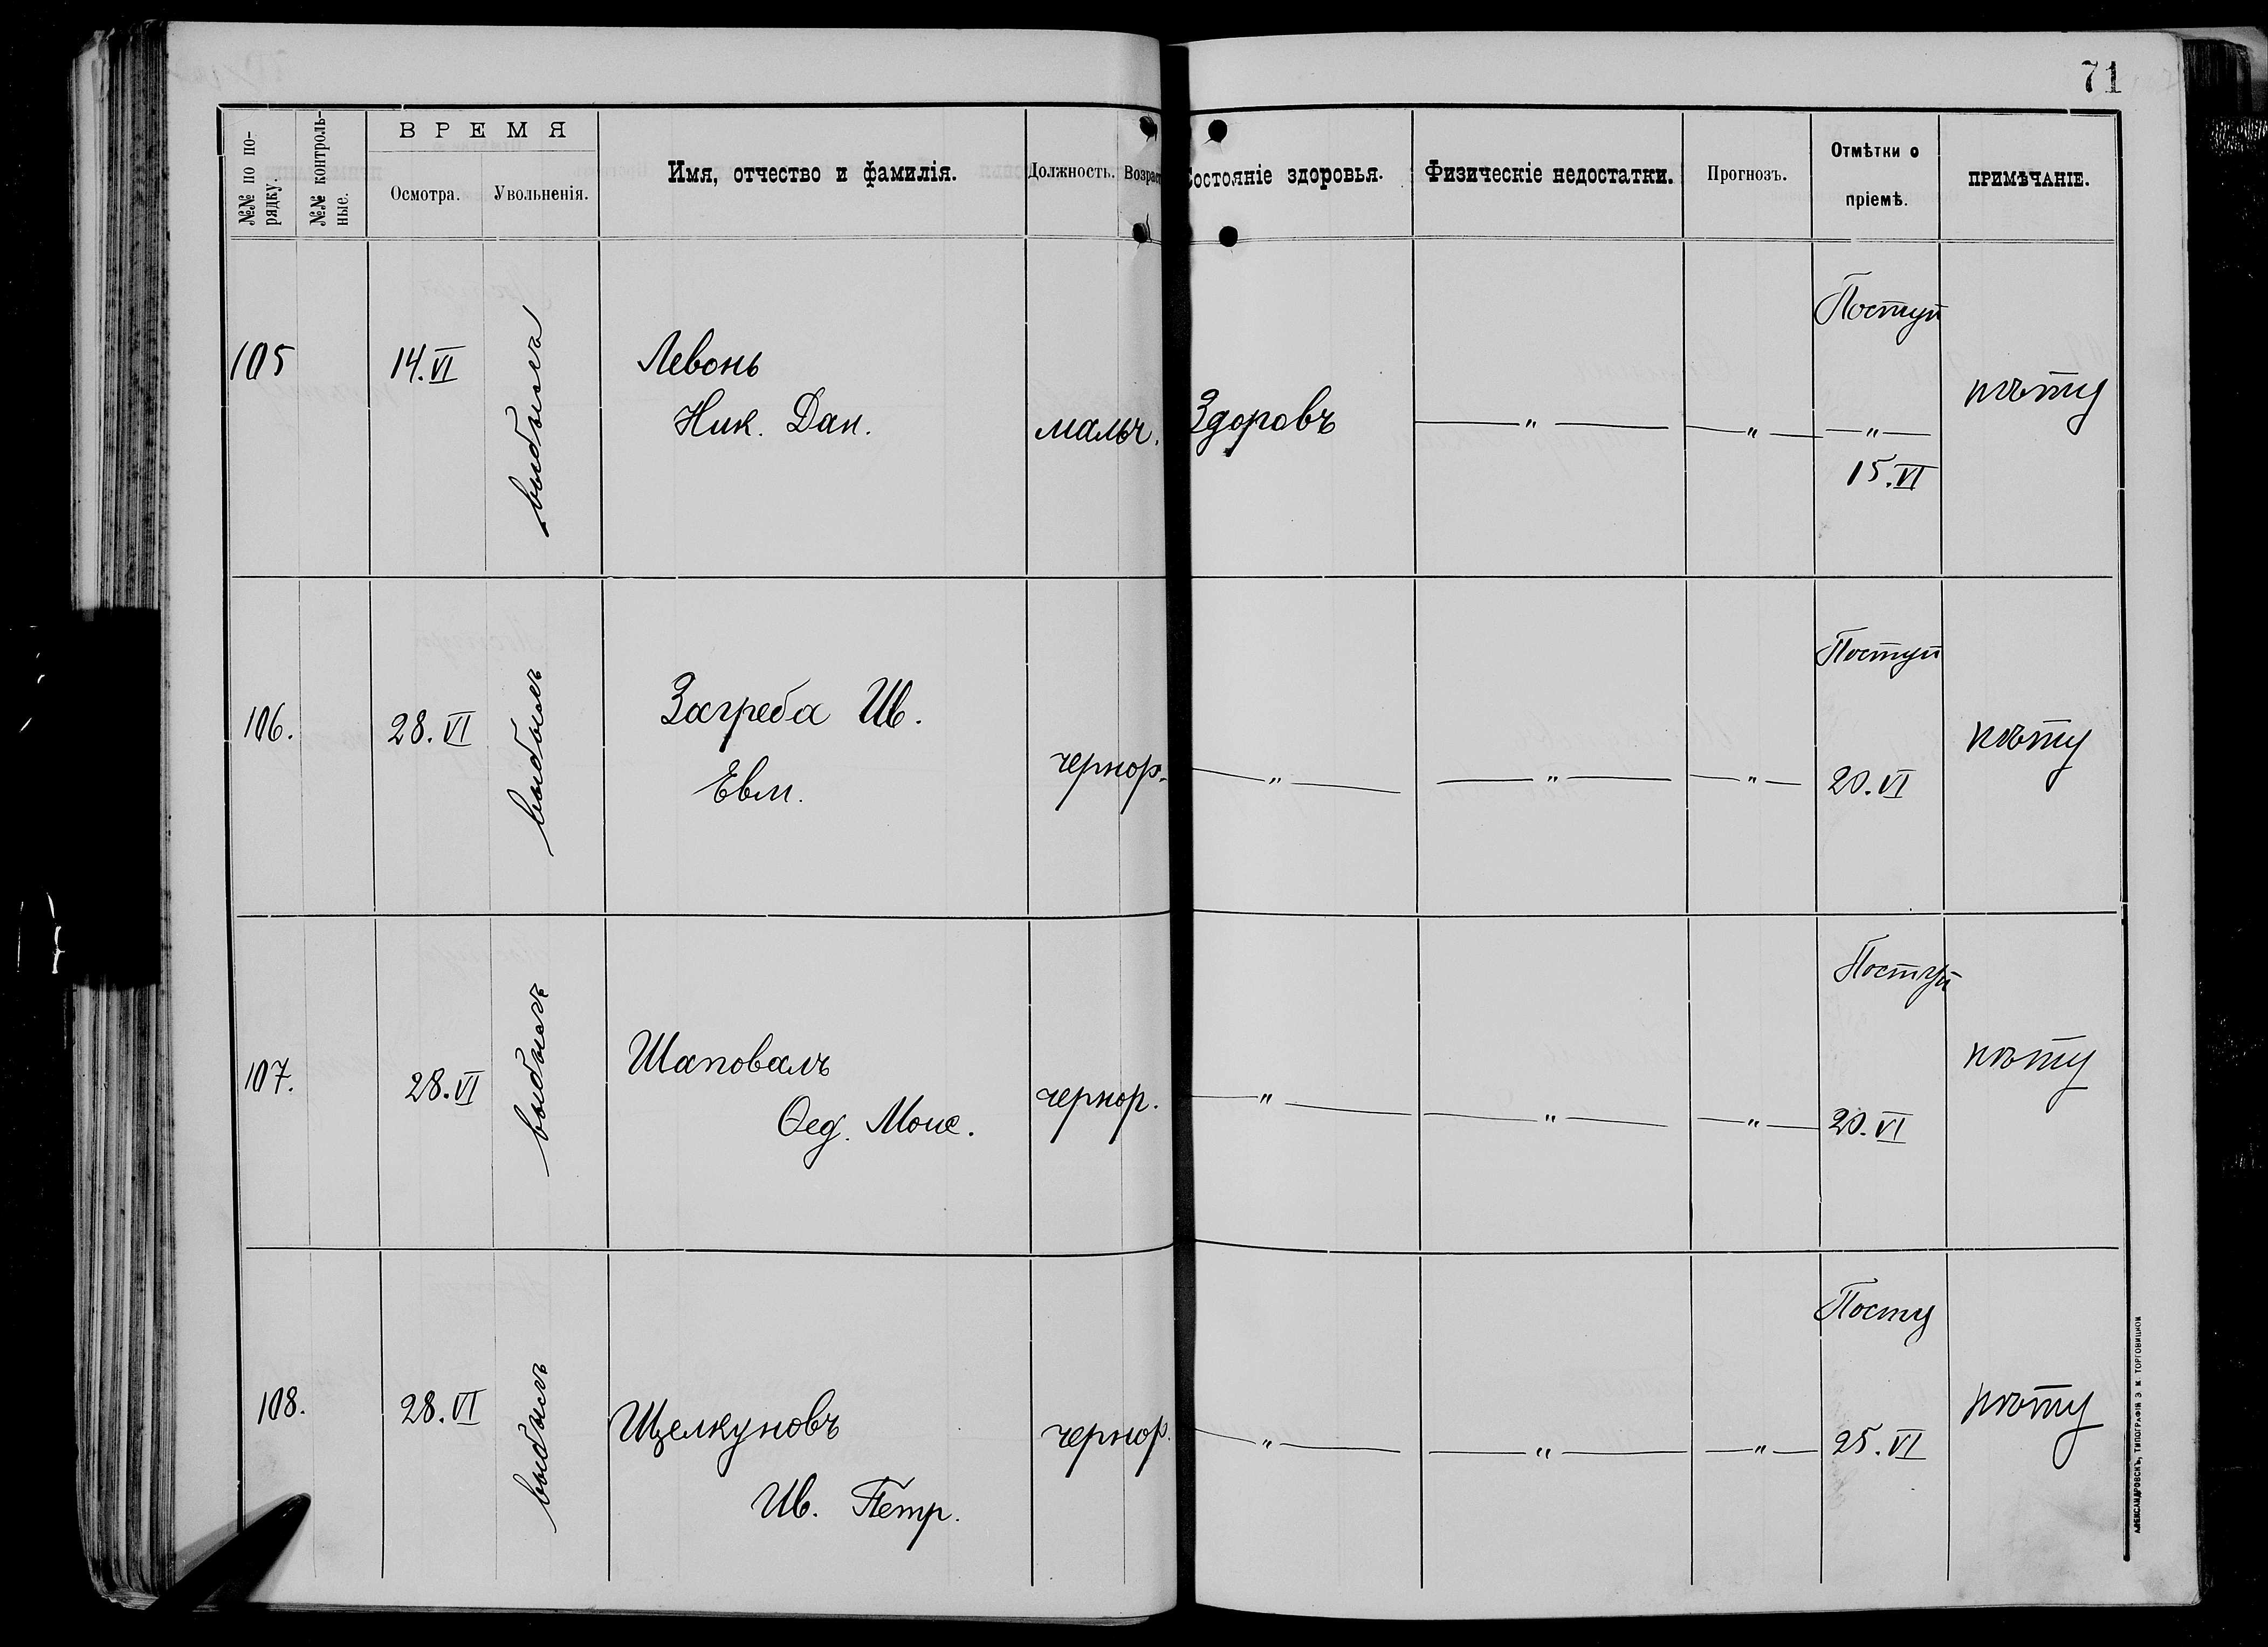 71
№№ по по-
рядку.
№№ контроль-
ные.
ВРЕМЯ
Осмотра.
Увольненія.
Имя, отчество и фамилія.
Должность.
Возраст
Состояніе здоровья.
Физическіе недостатки.
Прогнозъ.
Отмѣтки о
пріемѣ.
ПРИМѢЧАНІЕ.
105
14.VI
выбылъ
Левонь
Ник. Дан.
мальч.
Здоровъ
— „ —
— „ —
Поступ
— „ —
15.VI
106.
28.VI
выбылъ
Загреба Ив.
Евм.
чернор.
— „ —
— „ —
— „ —
Поступ
20.VI
107.
28.VI
выбылъ
Шаповалъ
Ѳед. Моис.
чернор.
— „ —
— „ —
— „ —
Поступ
20.VI
108.
28.VI
выбылъ
Щелкуновъ
Ив. Петр.
чернор.
— „ —
— „ —
— „ —
Посту
25.VI
АЛЕКСАНДРОВСКЪ, ТИПОГРАФІЯ Э. М. ТОРГОВИЦКОЙ